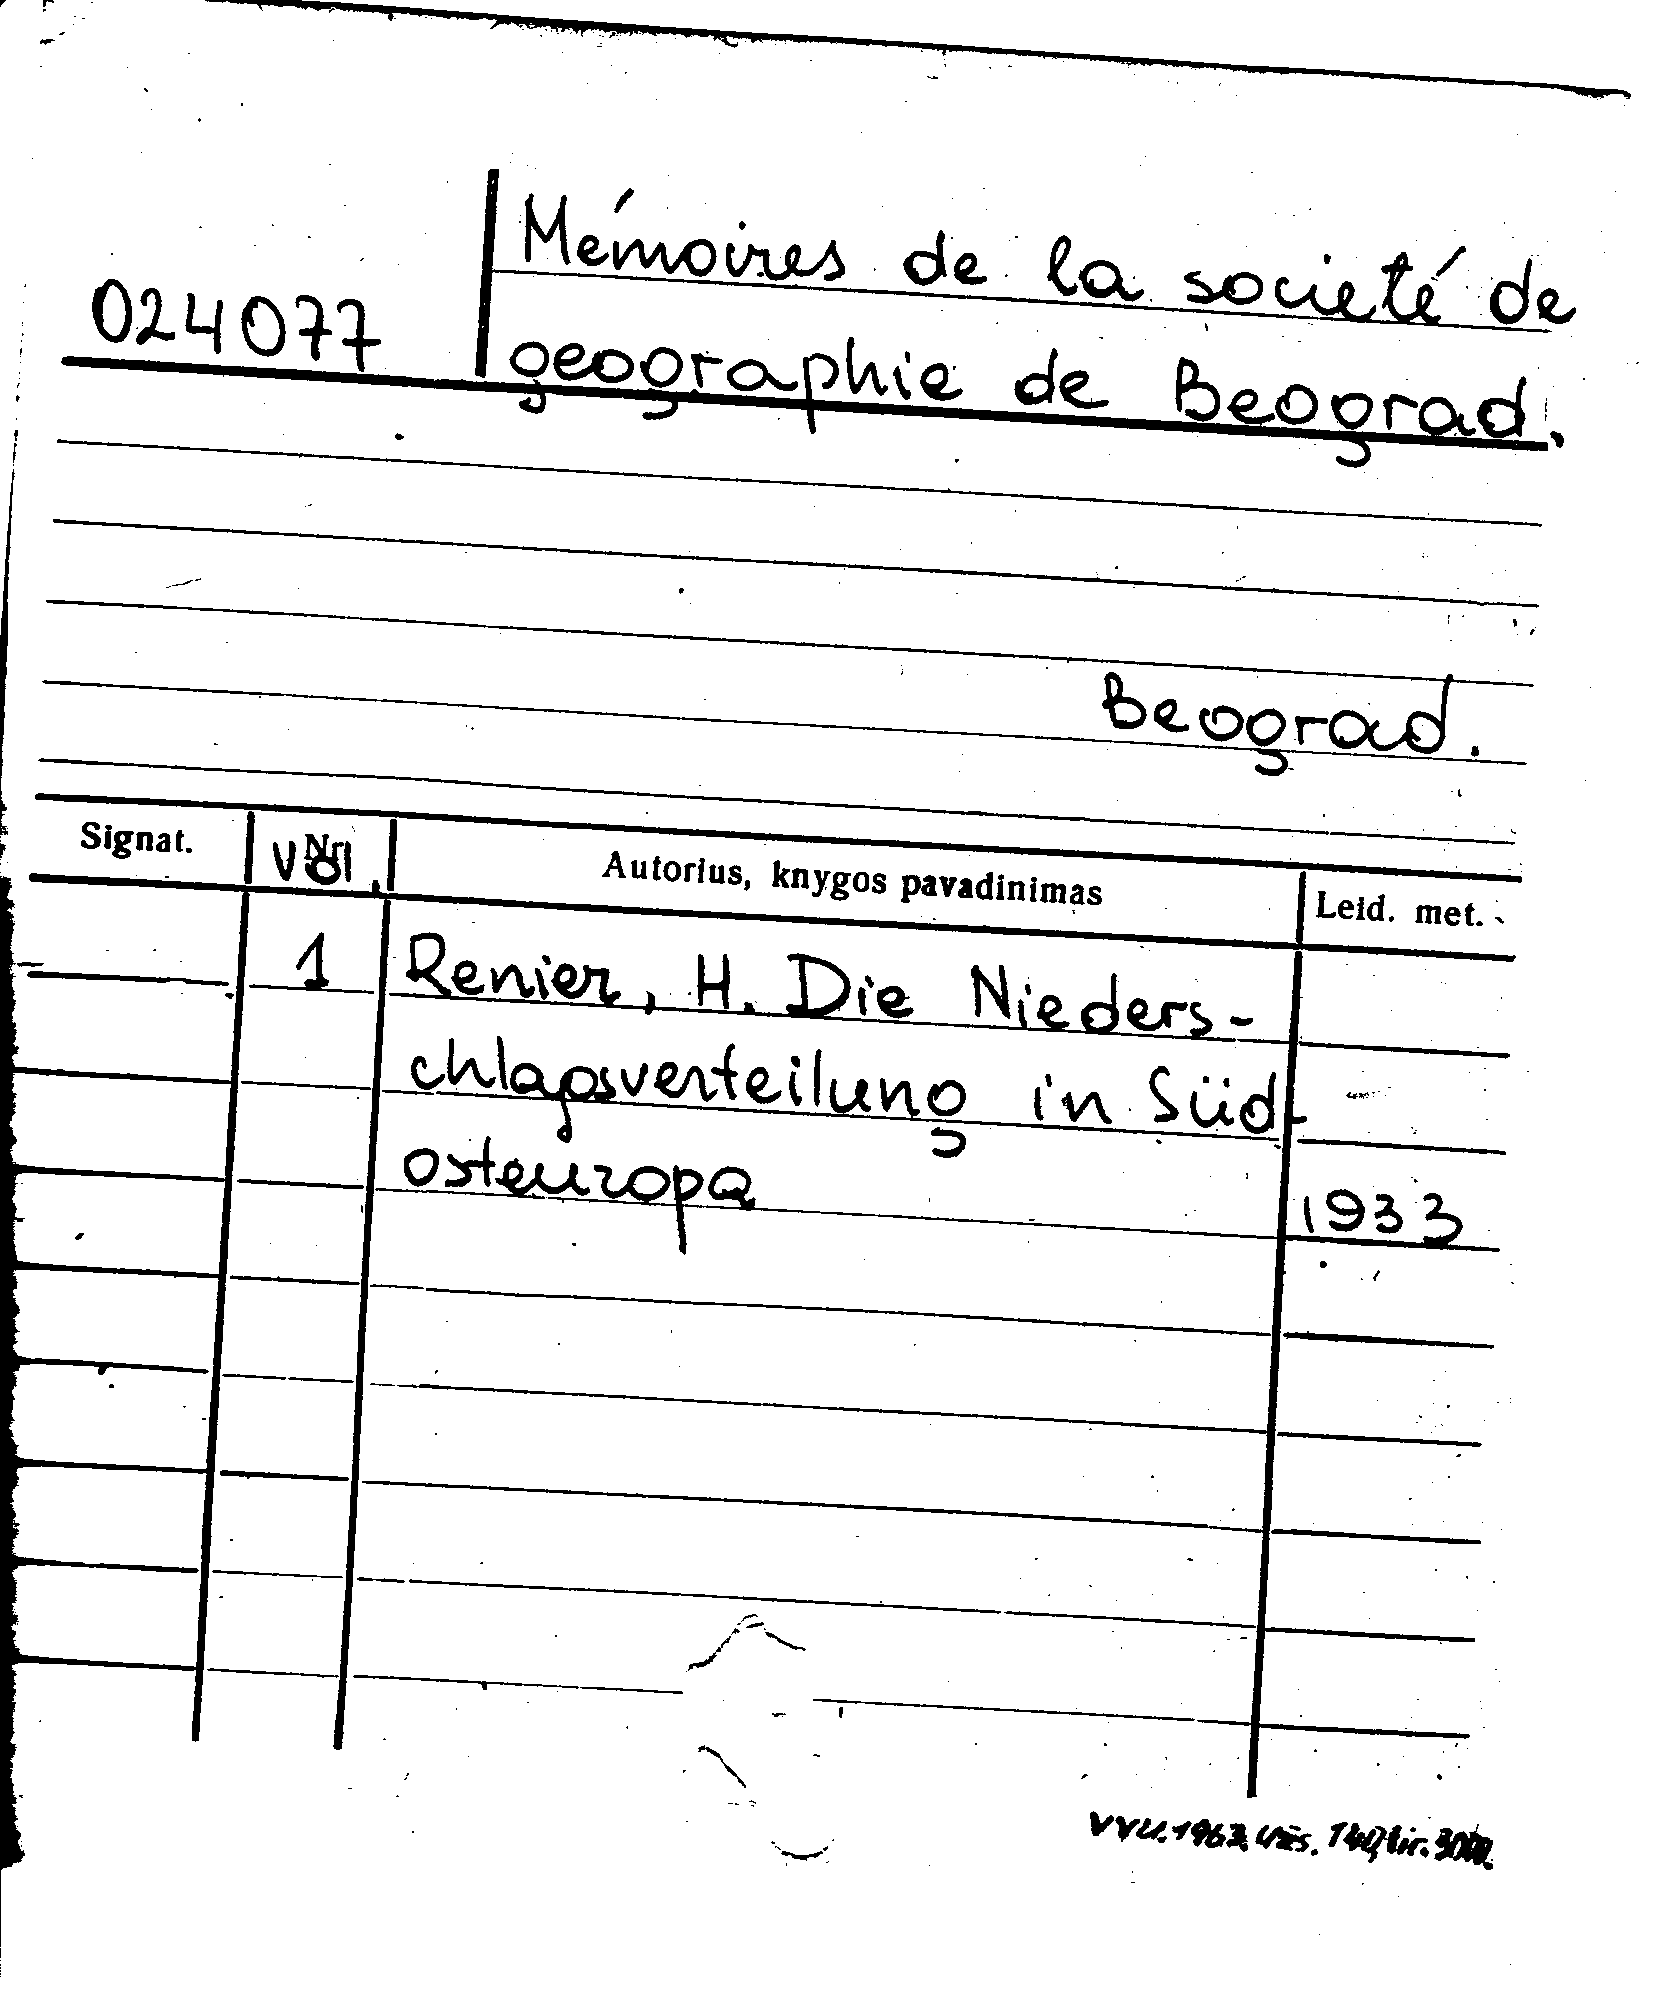 Mémoires de la societé de
024077
geographie de Beograd.
Beograd.
Signat. Nr. Vol. Autorius, knygos pavadinimas Leid. met.
1 Renier, H. Die Nieders-
chlagsverteilung in Süd-
osteuropa 1933
VVU. 1963. Užs. 140, tir.